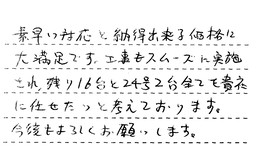 素早い対応と納得出来る価格に
大満足です。工事もスムーズに実施
され、残り16台と24号2台全てを貴社
に任せたいと考えております。
今後もよろしくお願いします。